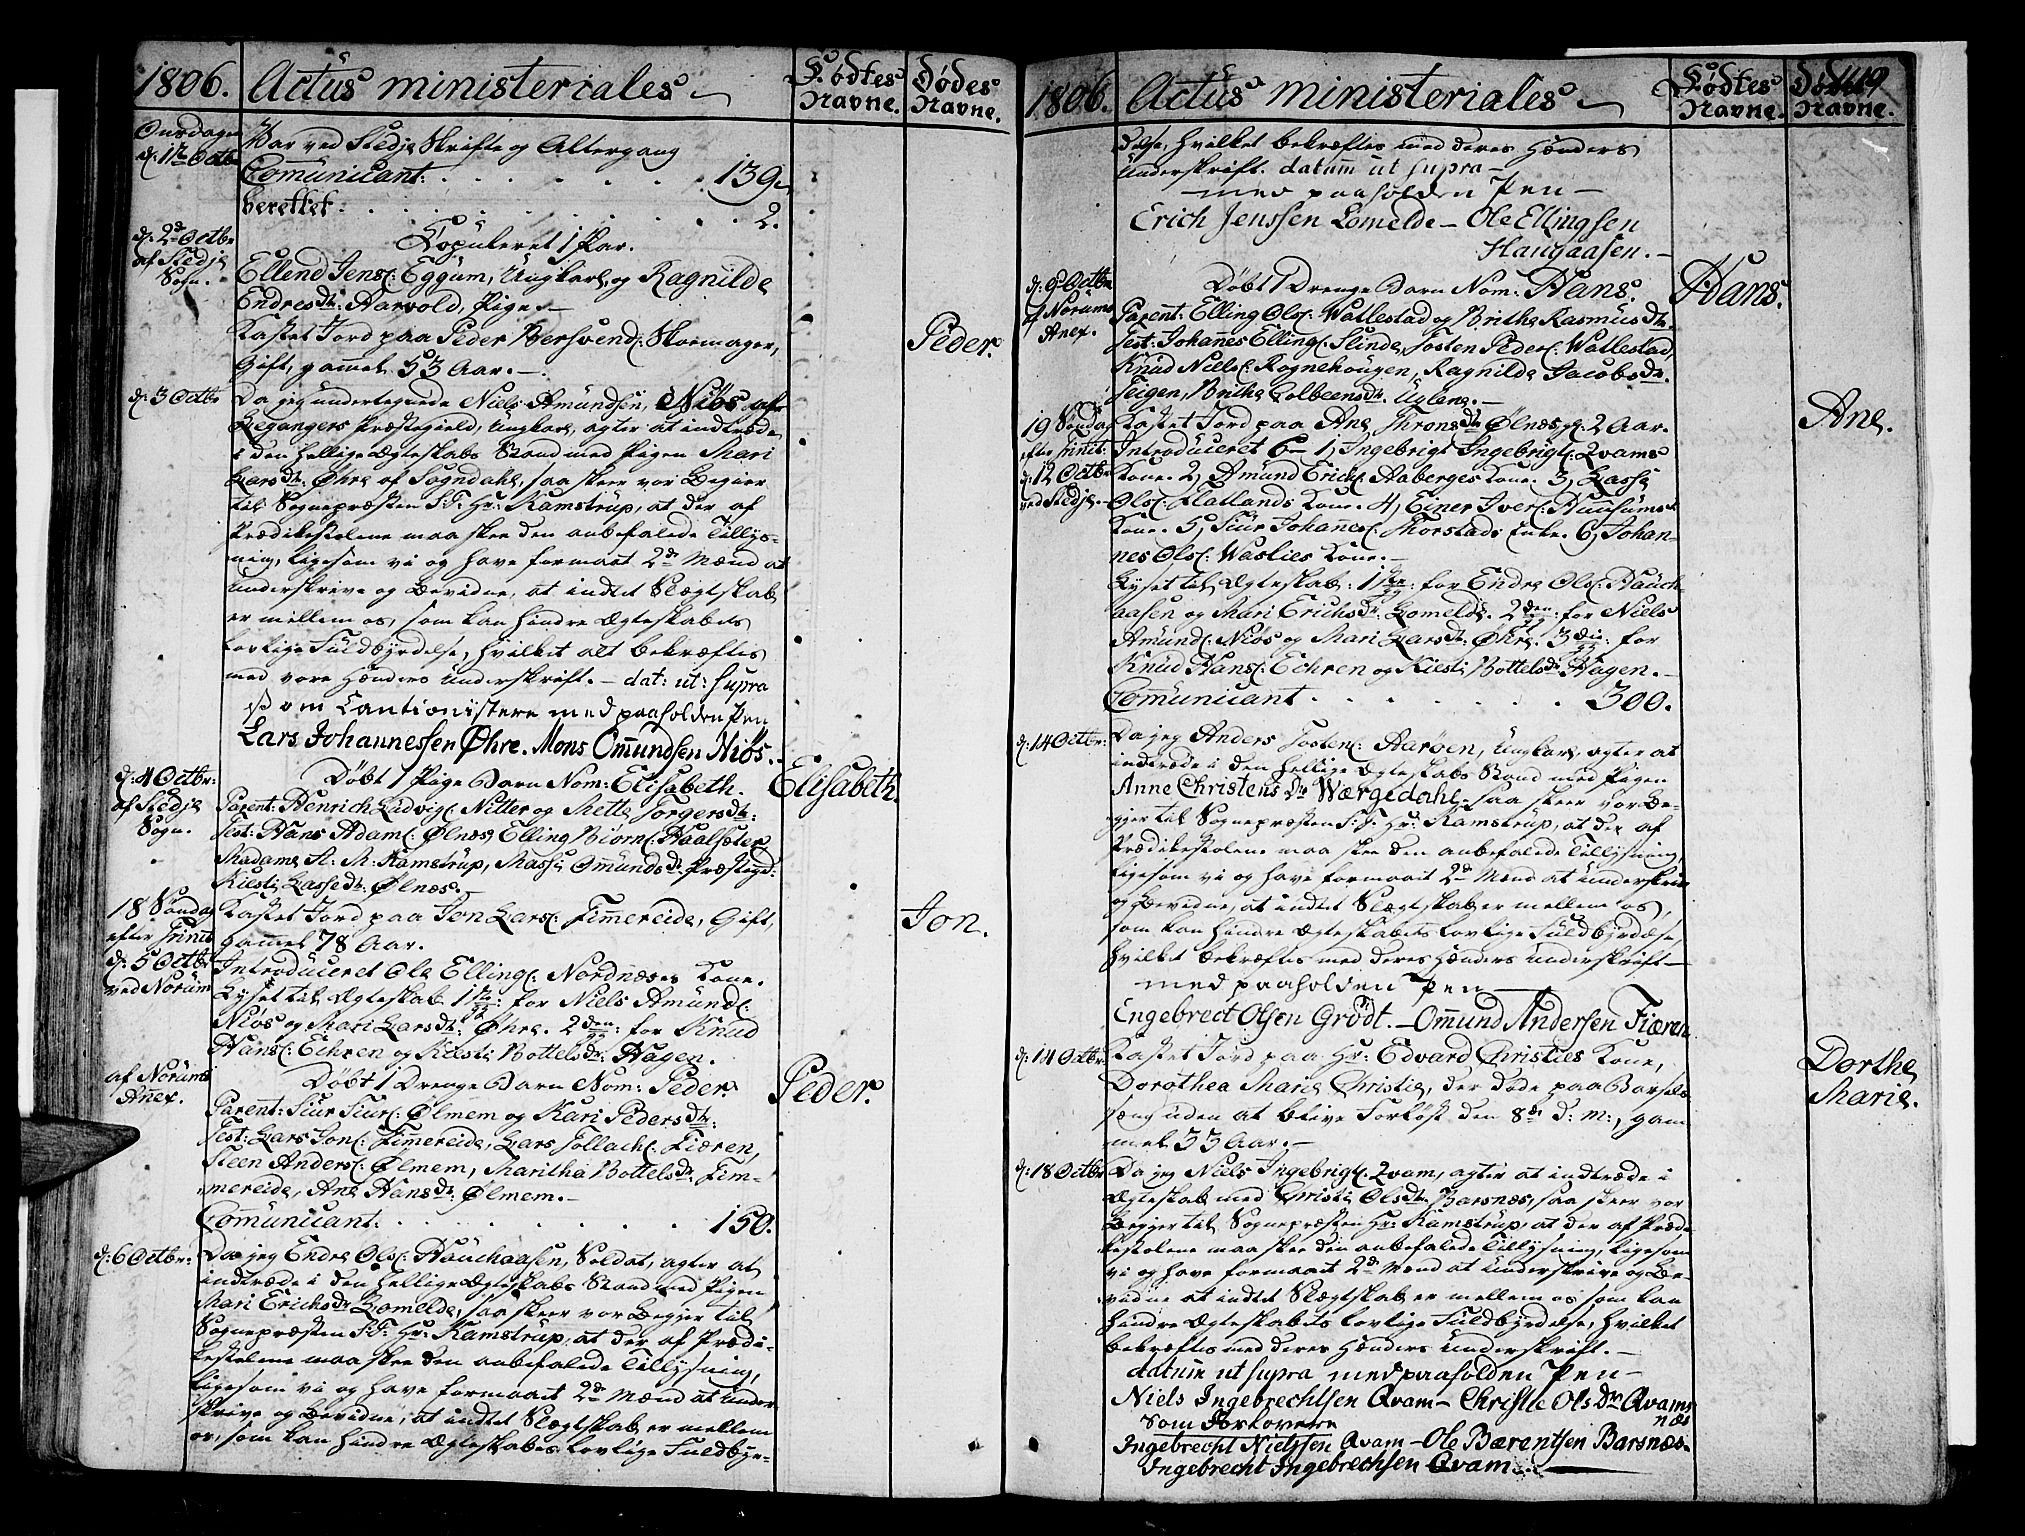 1806. Actus ministeriales
Fødtes Navne.
Dødes Navne.
Onsdagen d: 1te Octbr
Var ved Stedje Skrifte og Altergang
Communicant: 139
berettet 2.
d: 2d Octbr af Stedje Sogn.
Copuleret 1 Par.
Ellend Jens: Eggum, Ungkarl, og Ragnilde
Endresdr: Harvold, Pige.
Kastet Jord paa Peder Bersvend: Skomager,
Gift, gammel 53 Aar.
Peder.
d: 3 Octbr
Da jeg undertegnede Niels Amundsen, Niøs af
Leganger Præstegield, Ungkarl, agter at indtræde
i den hellige Ægteskabs Stand med Pigen Mari
Larsdr: Øhre af Sogndahl, saa skeer vor Begier
til Sognepræsten S:T: Hr: Kamstrup, at der af
Prædikestolene maa skee den anbefalede Tillys-
ning, ligesom vi og have formaaet 2de Mænd at
underskrive og bevidne, at intet Slægtskab
er mellem os, som kan hindre Ægteskabets
lovlige Fuldbyrdelse, hvilket alt bekræftes
med vore Hænders Underskrift. dat: ut: supra
som Cautionistere med paaholden Pen
Lars Johannessen Øhre. Mons Omundsen Niøs.
d: 4 Octbr: af Stedje Sogn.
Døbt 1 Pige Barn Nom: Elisabeth.
Elisabeth.
Parent: Henrich Ludvig: Nitter og Mette Torgersdr:
Test: Hans Adam: Ølnæs, Elling Biørn: Haalsæter,
Madame A: M: Kamstrup, Massi Omundsdr: Præstegd:
Kiesti Lassedr: Ølnæs.
18 Søndag efter Trinit d: 5 Octbr ved Norum
Kastet Jord paa Jon Lars: Fimmereide, Gift,
gammel 78 Aar.
Jon.
Introduceret Ole Elling: Nordnæses Kone.
Lyset til Ægteskab 1te: for Niels Amund:
Niøs og Mari Larsdr: Øhre. 2den: for Knud
Hans: Eehren og Kiesti Bottelsdr: Hagen.
af Norums Anex.
Døbt 1 Drenge Barn Nom: Peder.
Peder.
Parent: Siur Siurs: Ølmem og Kari Pedersdr:
Test: Lars Jon: Fimmereide, Lars Tollach: Fiæren,
Steen Anders: Ølmem, Maritha Bottelsdr: Fim-
mereide, Ane Hansdr: Ølmem.
Communicant: 150.
d: 6 Octbr:
Da jeg Endre Ols: Hauchaasen, Soldat, agter at
indtræde i den hellige Ægteskabs Stand med Pigen
Mari Erichsdr Lomelde, saa skeer vor Begjer til
Sognepræsten S:T: Hr: Kamstrup, at der af Prædi-
kestolene maa skee den anbefalede Tillysning,
ligesom vi og have formaaet 2de Mænd at under
skrive og bevidne, at intet Slægtskab er mellem
os, som kan hindre Ægteskabets lovlige Fuldbyr-
1806. Actus ministeriales
Fødtes Navne.
Dødes Navne.
149
delse, hvilket bekræftes med deres Hænders
Underskrift. datum ut supra
med paaholden Pen
Erich Jenssen Lomelde - Ole Ellingsen
Haugaasen.
d: 9 Octbr af Norums Anex.
Døbt 1 Drenge Barn Nom: Hans.
Hans.
Parent: Elling Ols: Wallestad og Britha Rasmusdr.
Test: Johannes Elling: Slinde, Tosten Peder: Wallestad,
Knud Niels: Rognehougen, Ragnilde Jacobsdr.
Teigen, Britha Colbeensdr: Uglane.
19 Søndag efter Trinit: d: 12 Octbr ved Stedje.
Kastet Jord paa Ane Thronsdr Ølnæs gl: 2 Aar.
Ane.
Introduceret 6 - 1, Ingebrigt Ingebrigt: Qvams
Kone. 2, Amund Erich: Aaberges Kone. 3, Lasse
Ols: Flatlands Kone. 4, Einer Iver: Huusums
Kone. 5, Siur Johannes: Thorstads Enke. 6, Johan-
nes Ols: Waslies Kone.
Lyset til Ægteskab: 1te: for Endre Ols: Hauch-
aasen og Mari Erichsdr: Lomelde. 2den: for Niels
Amund: Niøs og Mari Larsdr: Øhre. 3die: for
Knud Hans: Eehren og Kiesti Bottelsdr Hagen.
Communicant 300.
d: 14 Octbr:
Da jeg Anders Tosten: Aarøen, Ungkarl, agter at
indtræde i den hellige Ægteskabs Stand med Pigen
Anne Christens Dr Wærgedahl, saa skeer vor Be-
gjer til Sognepræsten S:T: Hr: Kamstrup, at der af
Prædikestolene maa skee den anbefalede Tillysning,
ligesom vi og have formaaet 2de Mænd at underskrive
og bevidne, at intet Slægtskab er mellem os,
som kan hindre Ægteskabets lovlige Fuldbyrdelse,
hvilket bekræftes med deres Hænders Underskrift
med paaholden Pen
Engebrect Olsen Grødt. - Ommund Andersen Fiæren
d: 14 Octbr
Kastet Jord paa Hr: Edvard Christies Kone,
Dorothea Marie Christie, der døde paa Barsel-
sæng uden at blive forløst den 8de d: m:, gam
mel 33 Aar.
Dorthe Marie.
d: 18 Octbr
Da jeg Niels Ingebrigt: Qvam, agter at indtræde i
Ægteskab med Christi Olsdr. Barsnæs, saa skeer vor
Begjer til Sognepræsten Hr: Kamstrup, at der af Prædi
kestolene maa skee den anbefalede Tillysning, ligesom
vi og have formaaet 2de Mænd at underskrive og be-
vidne at intet Slægtskab er mellem os som kan
hindre Ægteskabets lovlige Fuldbyrdelse, hvilket
bekræftes med deres Hænders Underskrift.
datum ut supra med paaholden Pen
Niels Ingebrechtsen Qvam - Christie Ols Dr Qvams
næs
som Forlovere
Ingebrecht Nielssen Qvam - Ole Bærentsen Barsnæs
Ingebrecht Ingebrechsen Qvam.